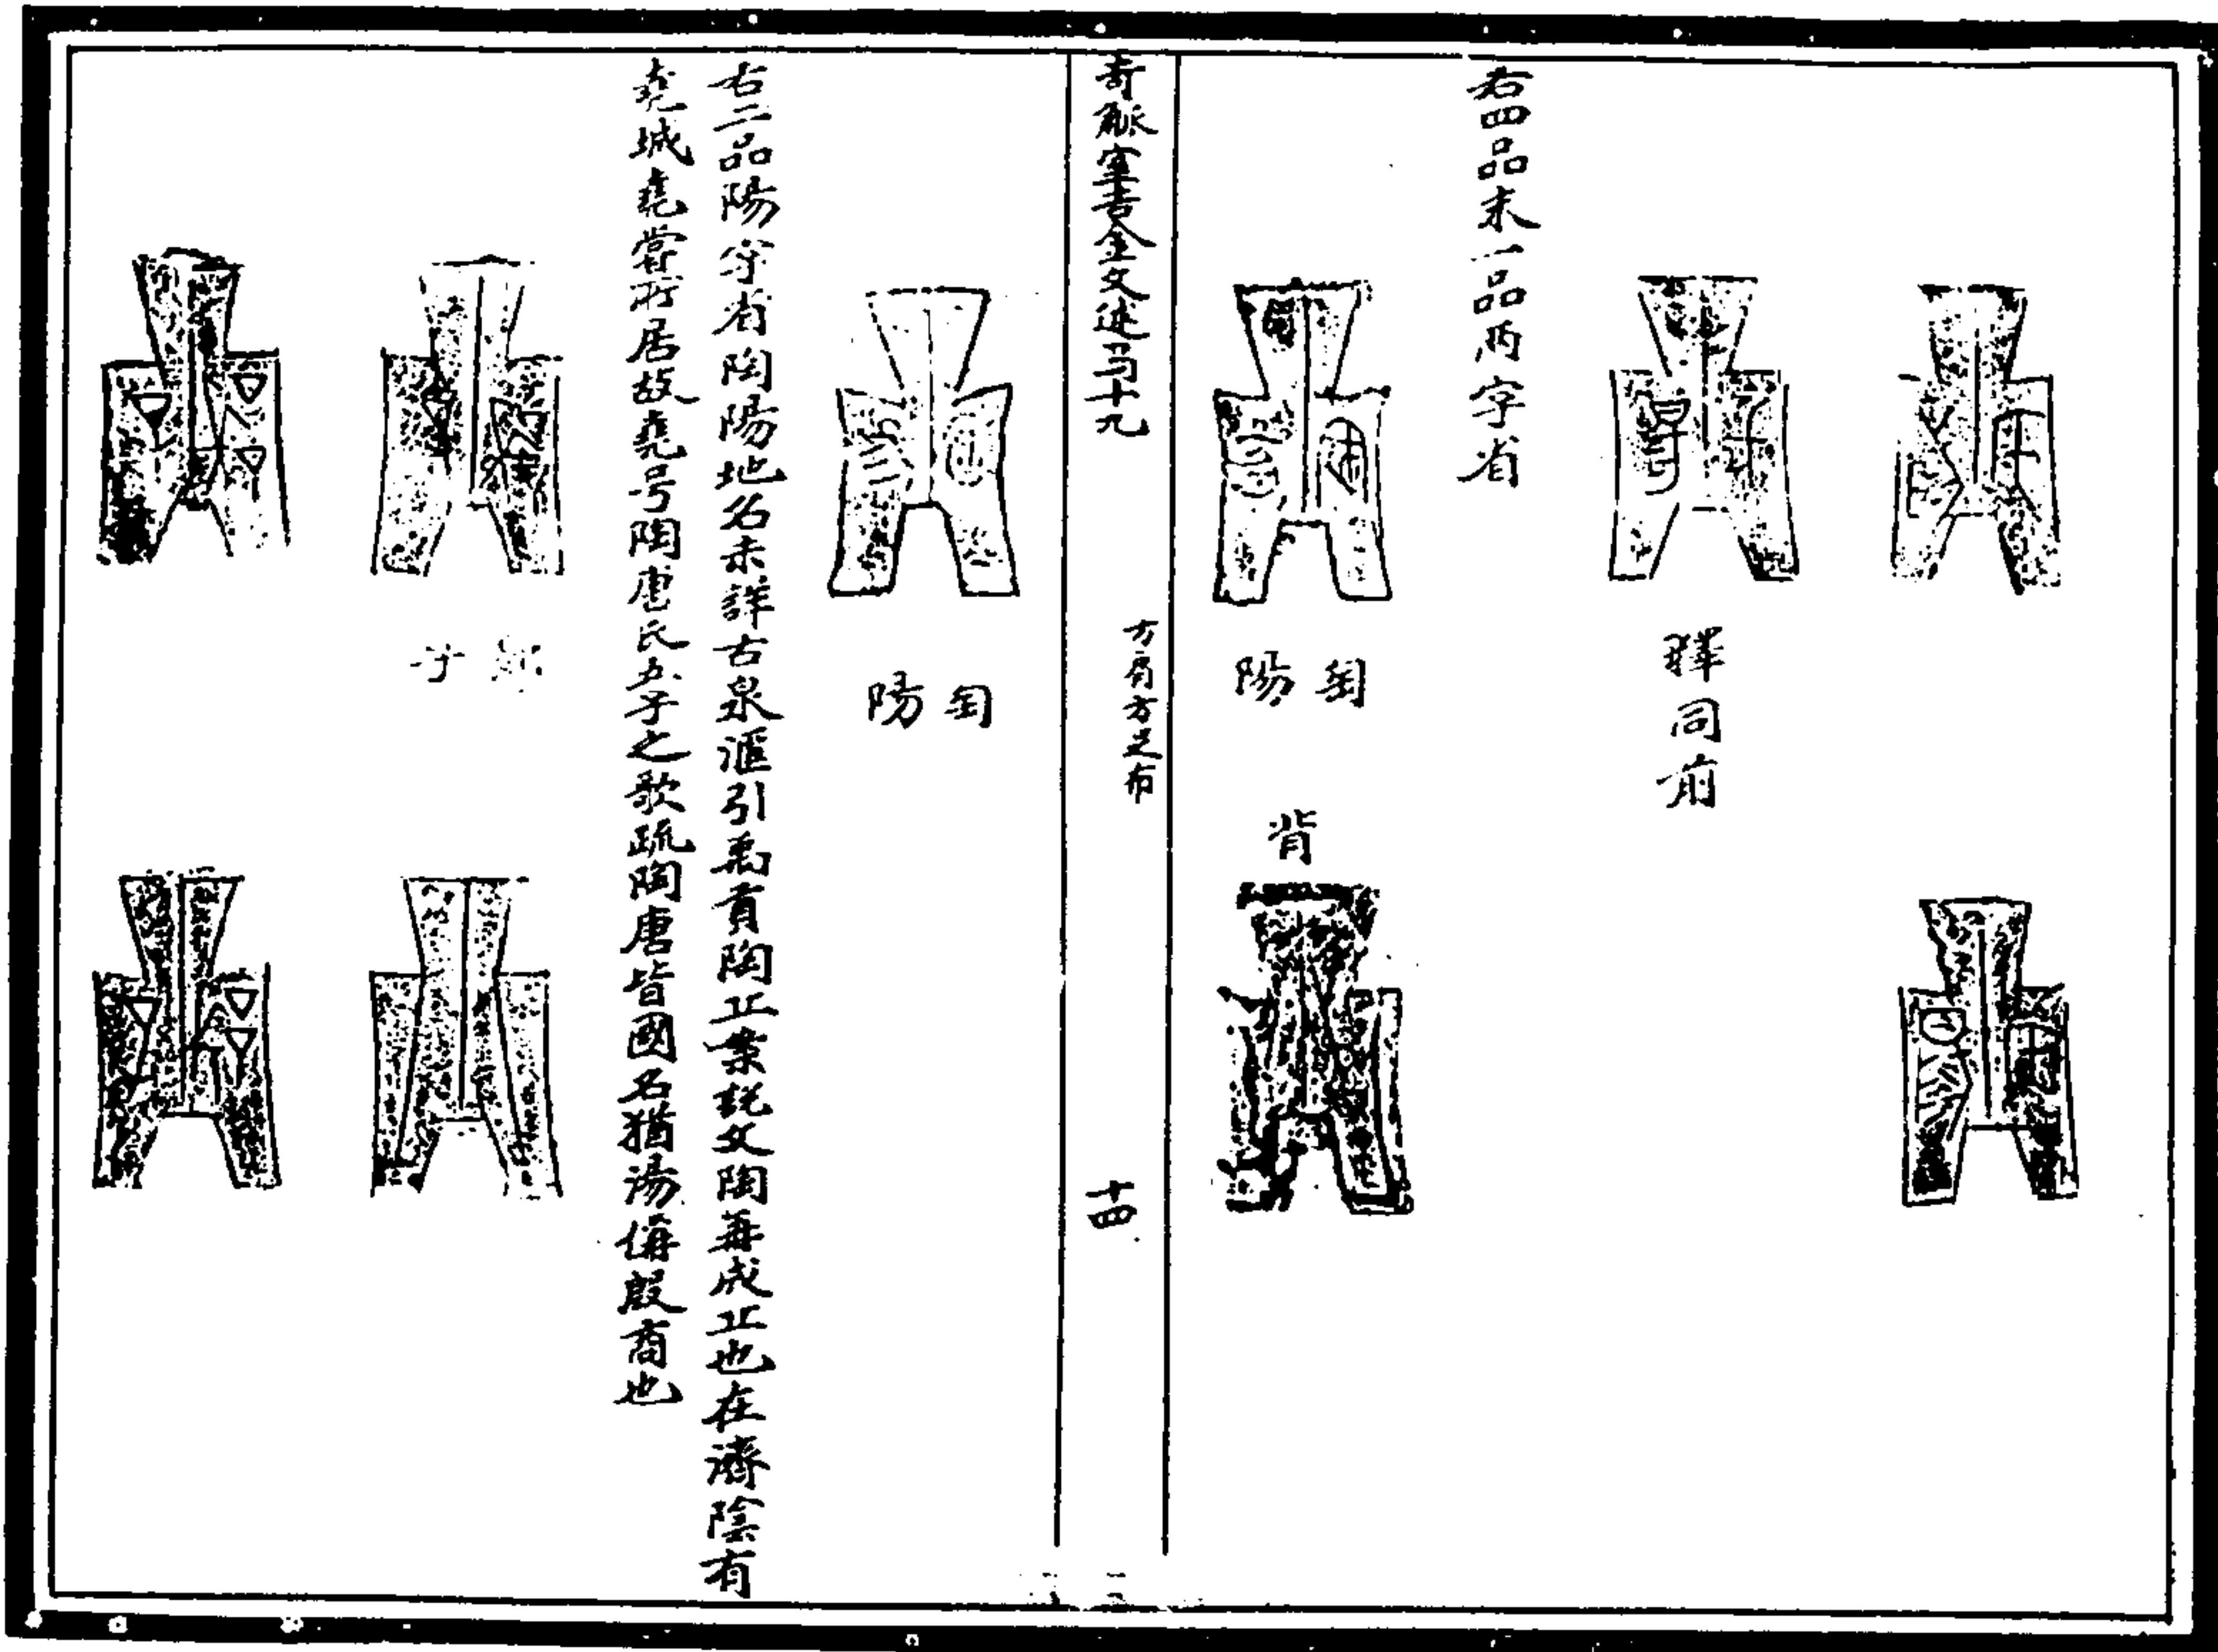 釋同前
右四品末一品兩字省
匋陽
背
奇觚室吉金文述弓十九
方肩方足布
十四
匋陽
右二品陽字省陶陽地名未詳古泉滙引禹貢陶丘案說文陶再成丘也在濟陰有
堯城堯嘗所居故堯号陶唐氏五子之歌疏陶唐皆國名猶湯偁殷商也